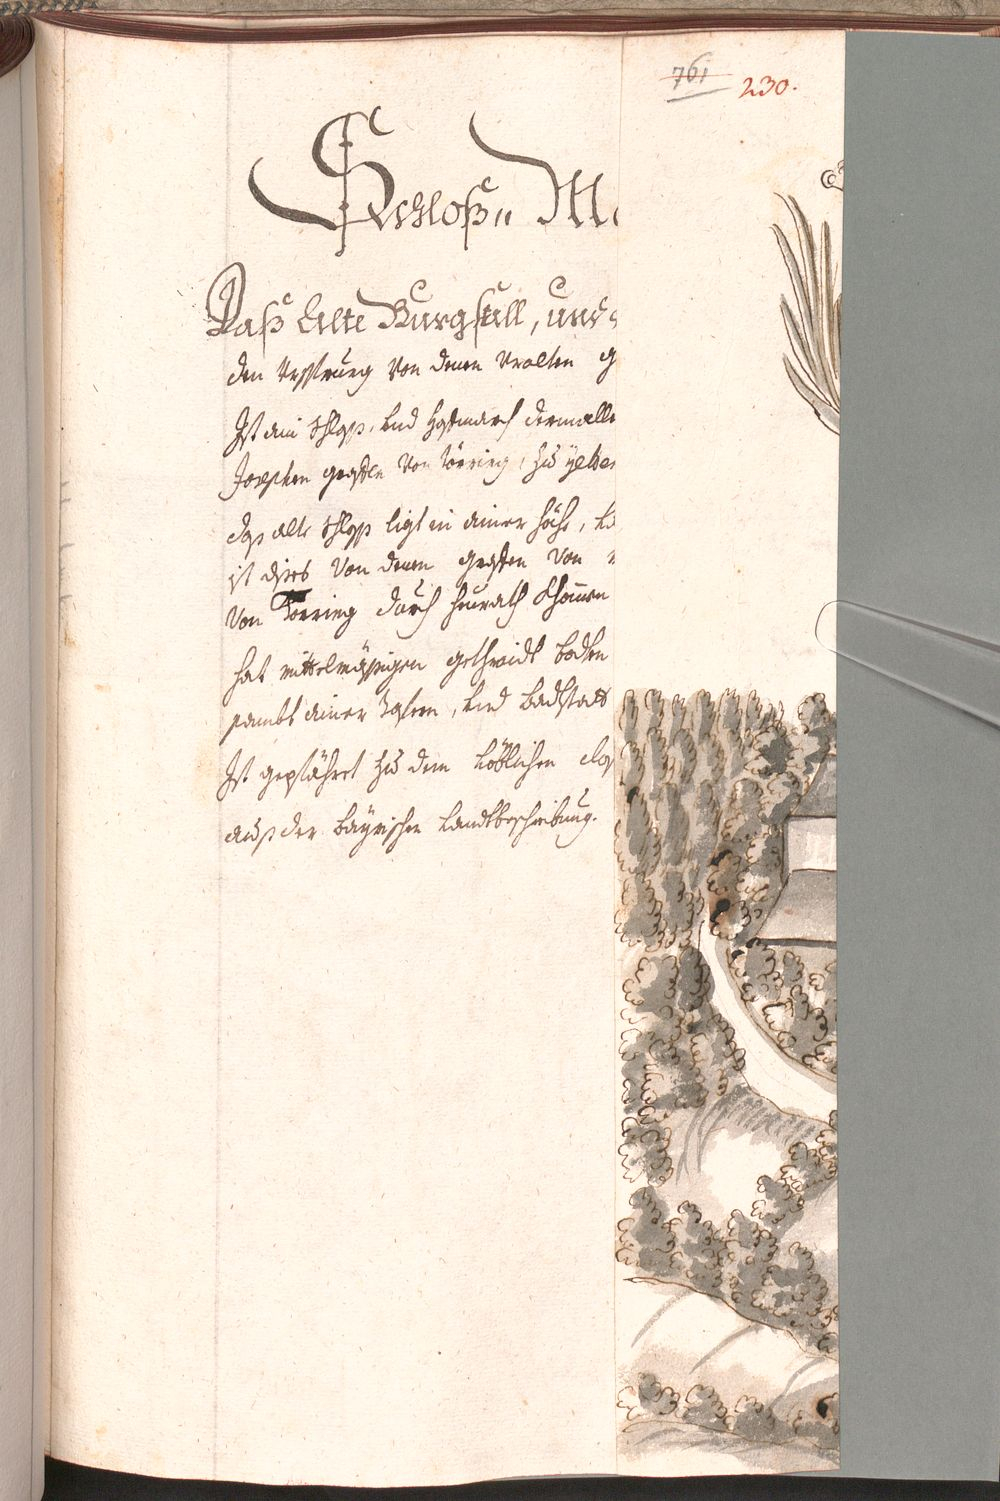 761 230.
Schloß„ M
Daß Alte Burgstall, und
den Ursprung Von denen Uralten g
Ist ain Schloß, und Hofmarch dermalle
Josephen graffen Von Törring, zu
das alte Schloß ligt in ainer höhe,
ist dises Von denen graffen Von
Von Törring durch heurath khommen
hat mittelmässigen gethraidt boden
sambt ainer Tafern, und badstatt
Ist gepfährt zu dem Löblichen
auß der bayrischen Landtbeschreibung.